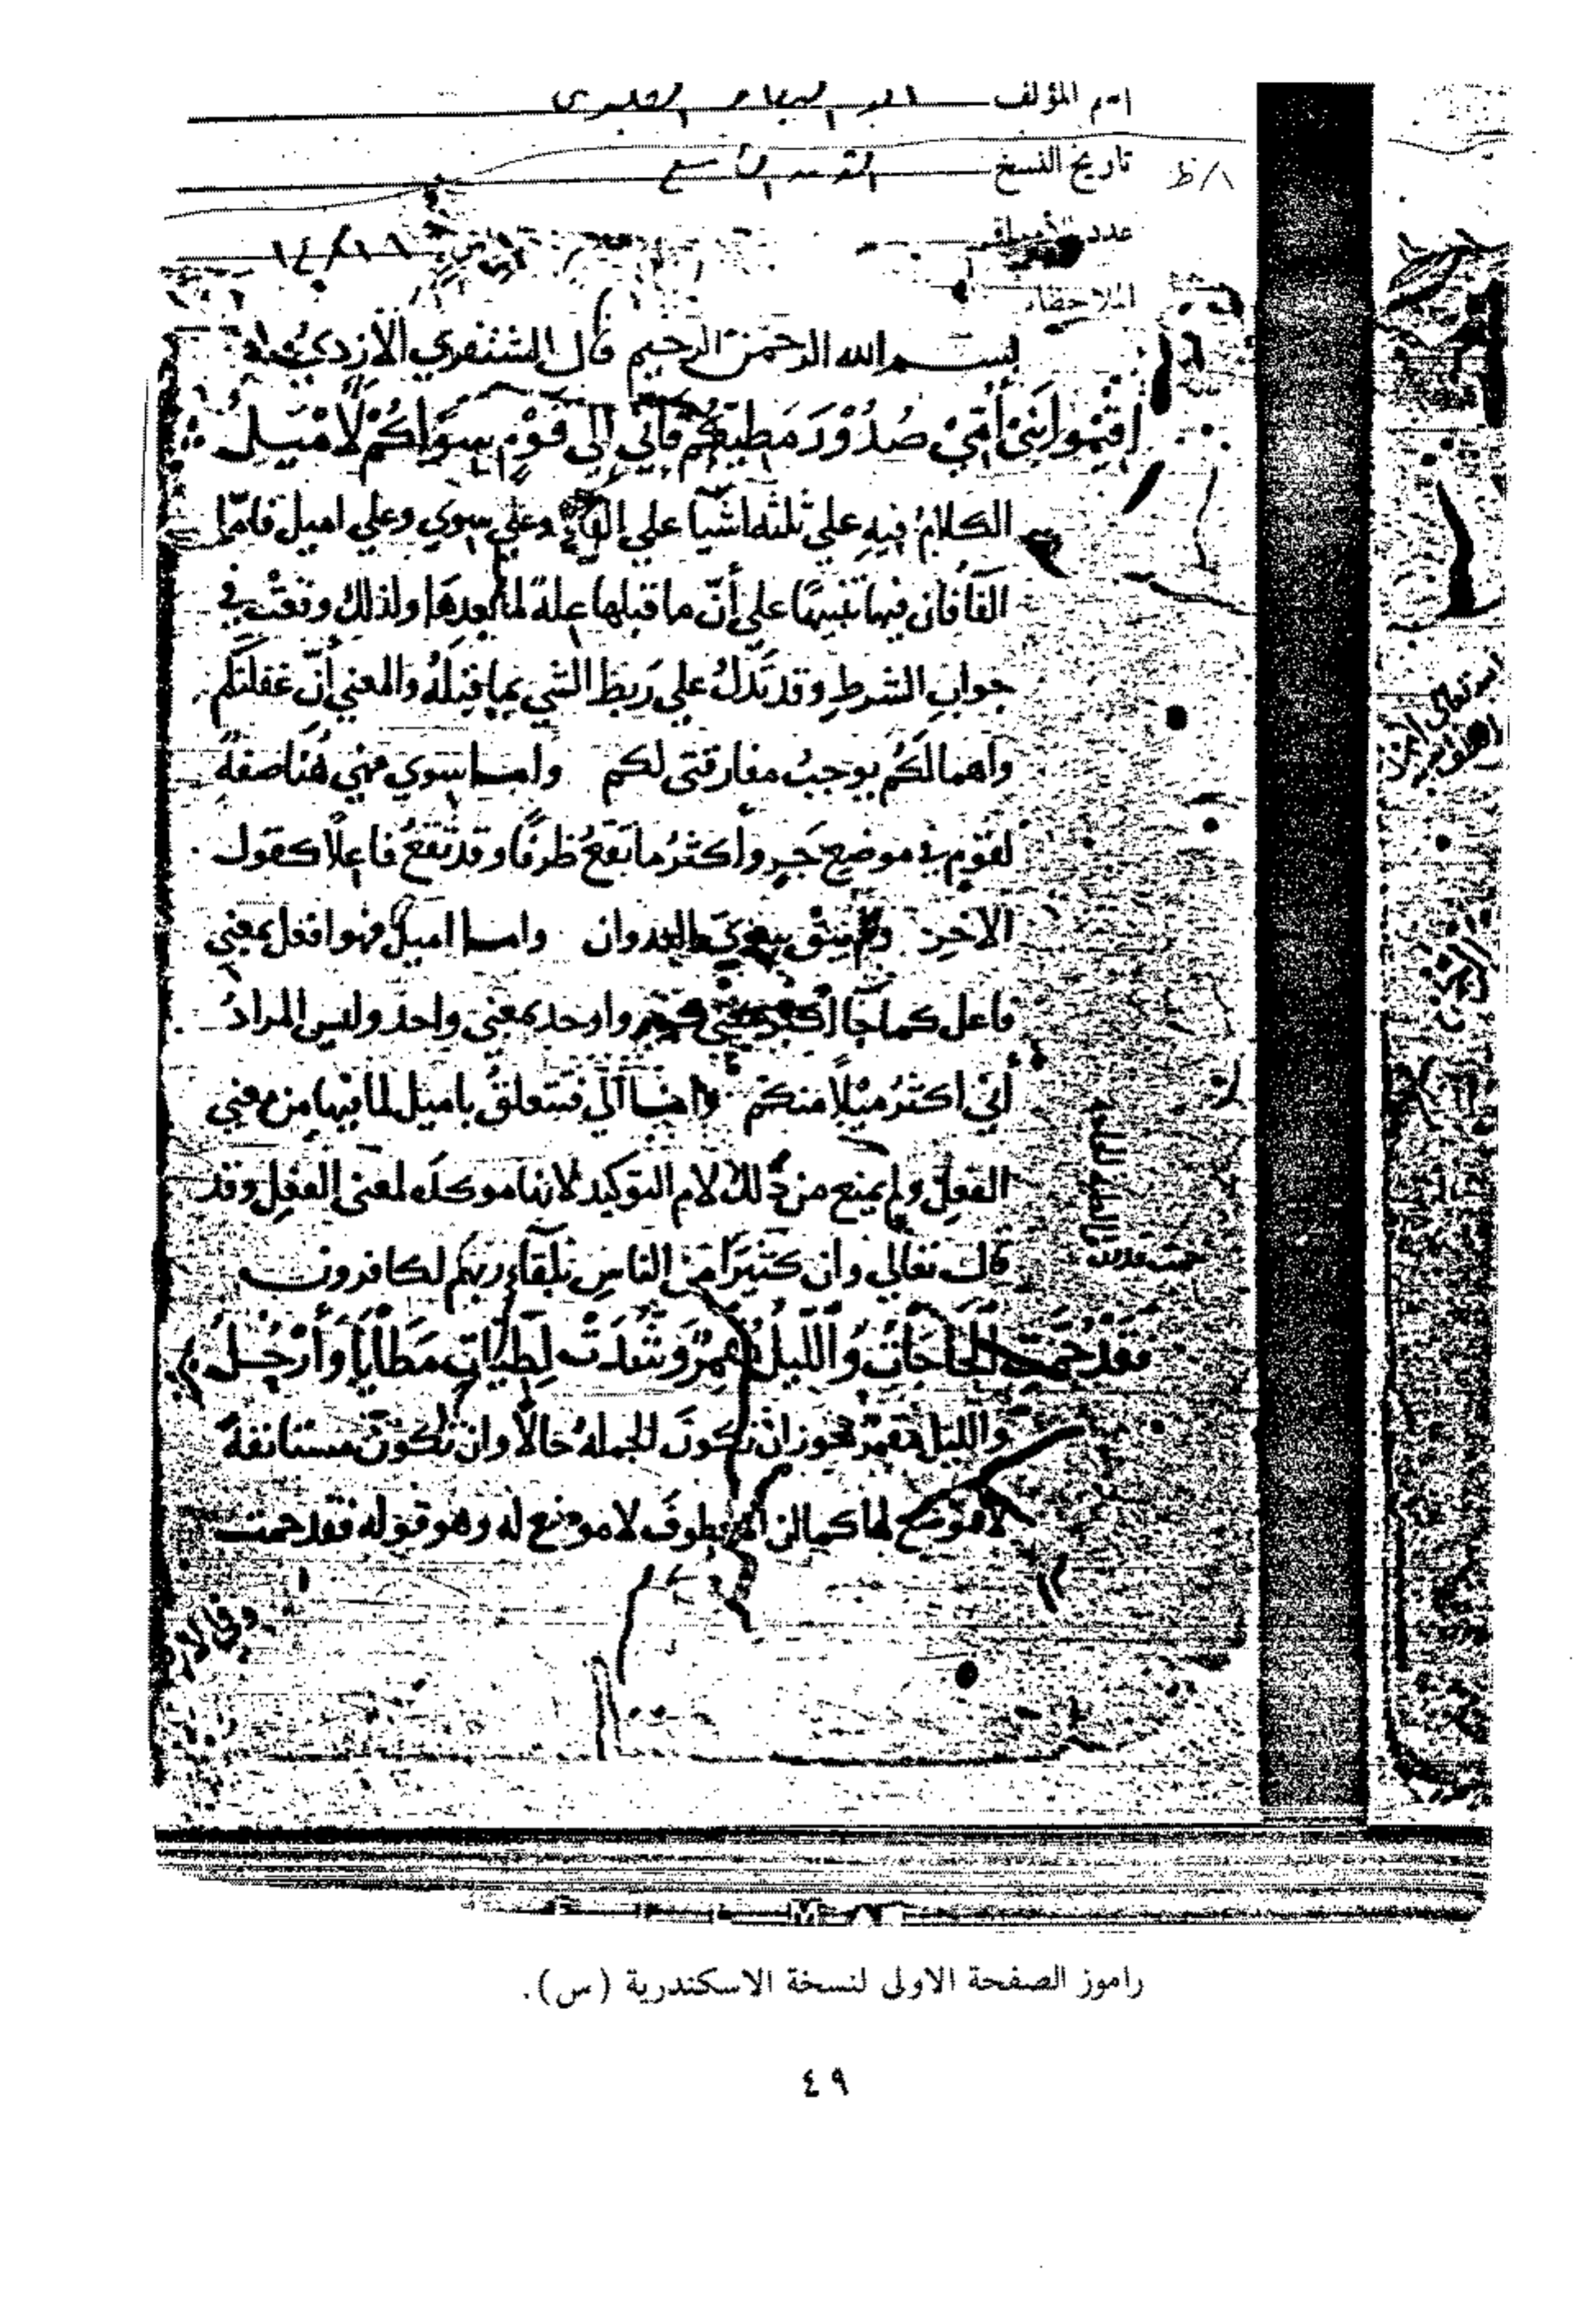 اسم المؤلف ابو البقاء العكبري
تاريخ النسخ القرن التاسع
٨/ظ
عدد الأوراق
الملاحظات
بسم الله الرحمن الرحيم قال الشنفري الازدي
اقيموا بني أمي صدور مطيكم فاني الي قوم سواكم لأميل
الكلام فيه علي ثلثه اشيا علي الفا وعلي سوي وعلي اميل فامّا
الفا فان فيها تنبيها علي أنّ ما قبلها علة لما بعدها ولذلك وقعت في
جواب الشرط وقد تدل علي ربط الشي بما قبله والمعني أنّ غفلتكم
واهمالكم يوجب مفارقتي لكم واما سوي فهي هنا صفة
لقوم في موضع جر وأكثر ما تقع ظرفا وقد تقع فاعلا كقول
الاخر ولم يبق سوي العدوان واما اميل فهو افعل بمعني
فاعل كما جا اكبر بمعني كبير واوحد بمعني واحد وليس المراد
أني اكثر ميلا منكم واما الي فتتعلق باميل لما فيها من معني
الفعل ولم يمنع من ذلك لام التوكيد لانها موكده لمعني الفعل وقد
قال تعالي وان كثيرا من الناس بلقاء ربهم لكافرون
فقد حمت الحاجات والليل مقمر وشدت لطيات مطايا وأرحل
والليل مقمر يجوز ان تكون الجملة حالا وان تكون مستانفة
لا موضع لها كما ان المعطوف لا موضع له وهو قوله فقد حمت
راموز الصفحة الاولى لنسخة الاسكندرية (س).
٤٩